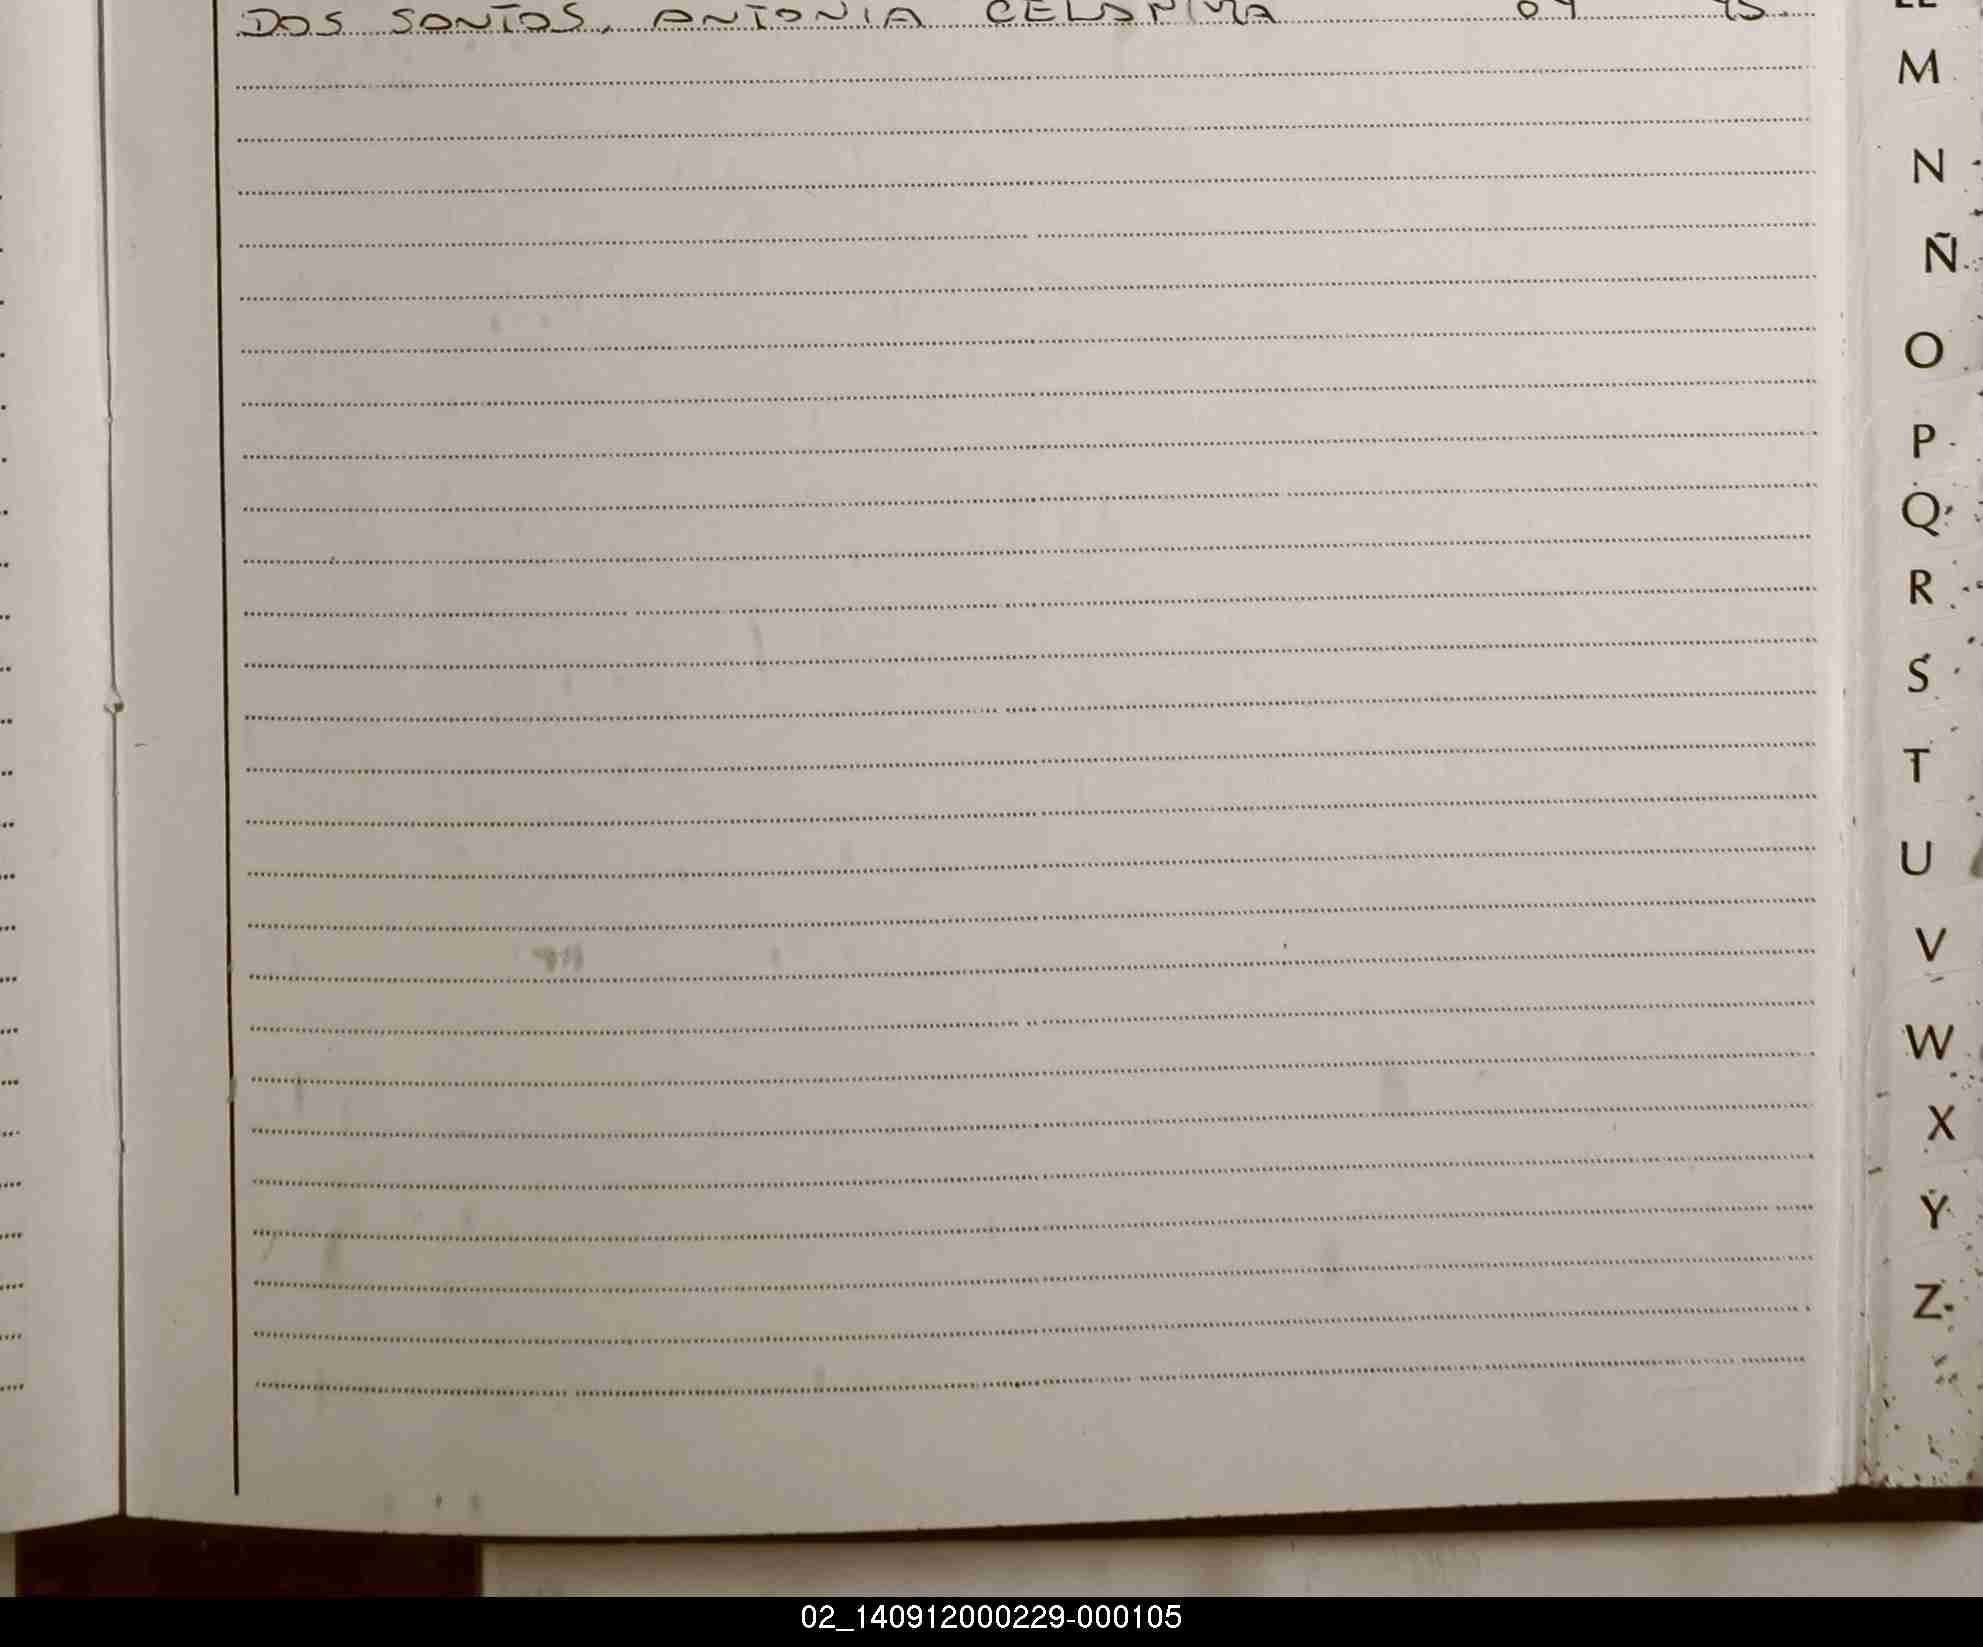 DOS SANTOS, ANTONIA
LL
M
N
Ñ
O
P
Q
R
S
T
U
V
W
X
Y
Z
02_140912000229-000105